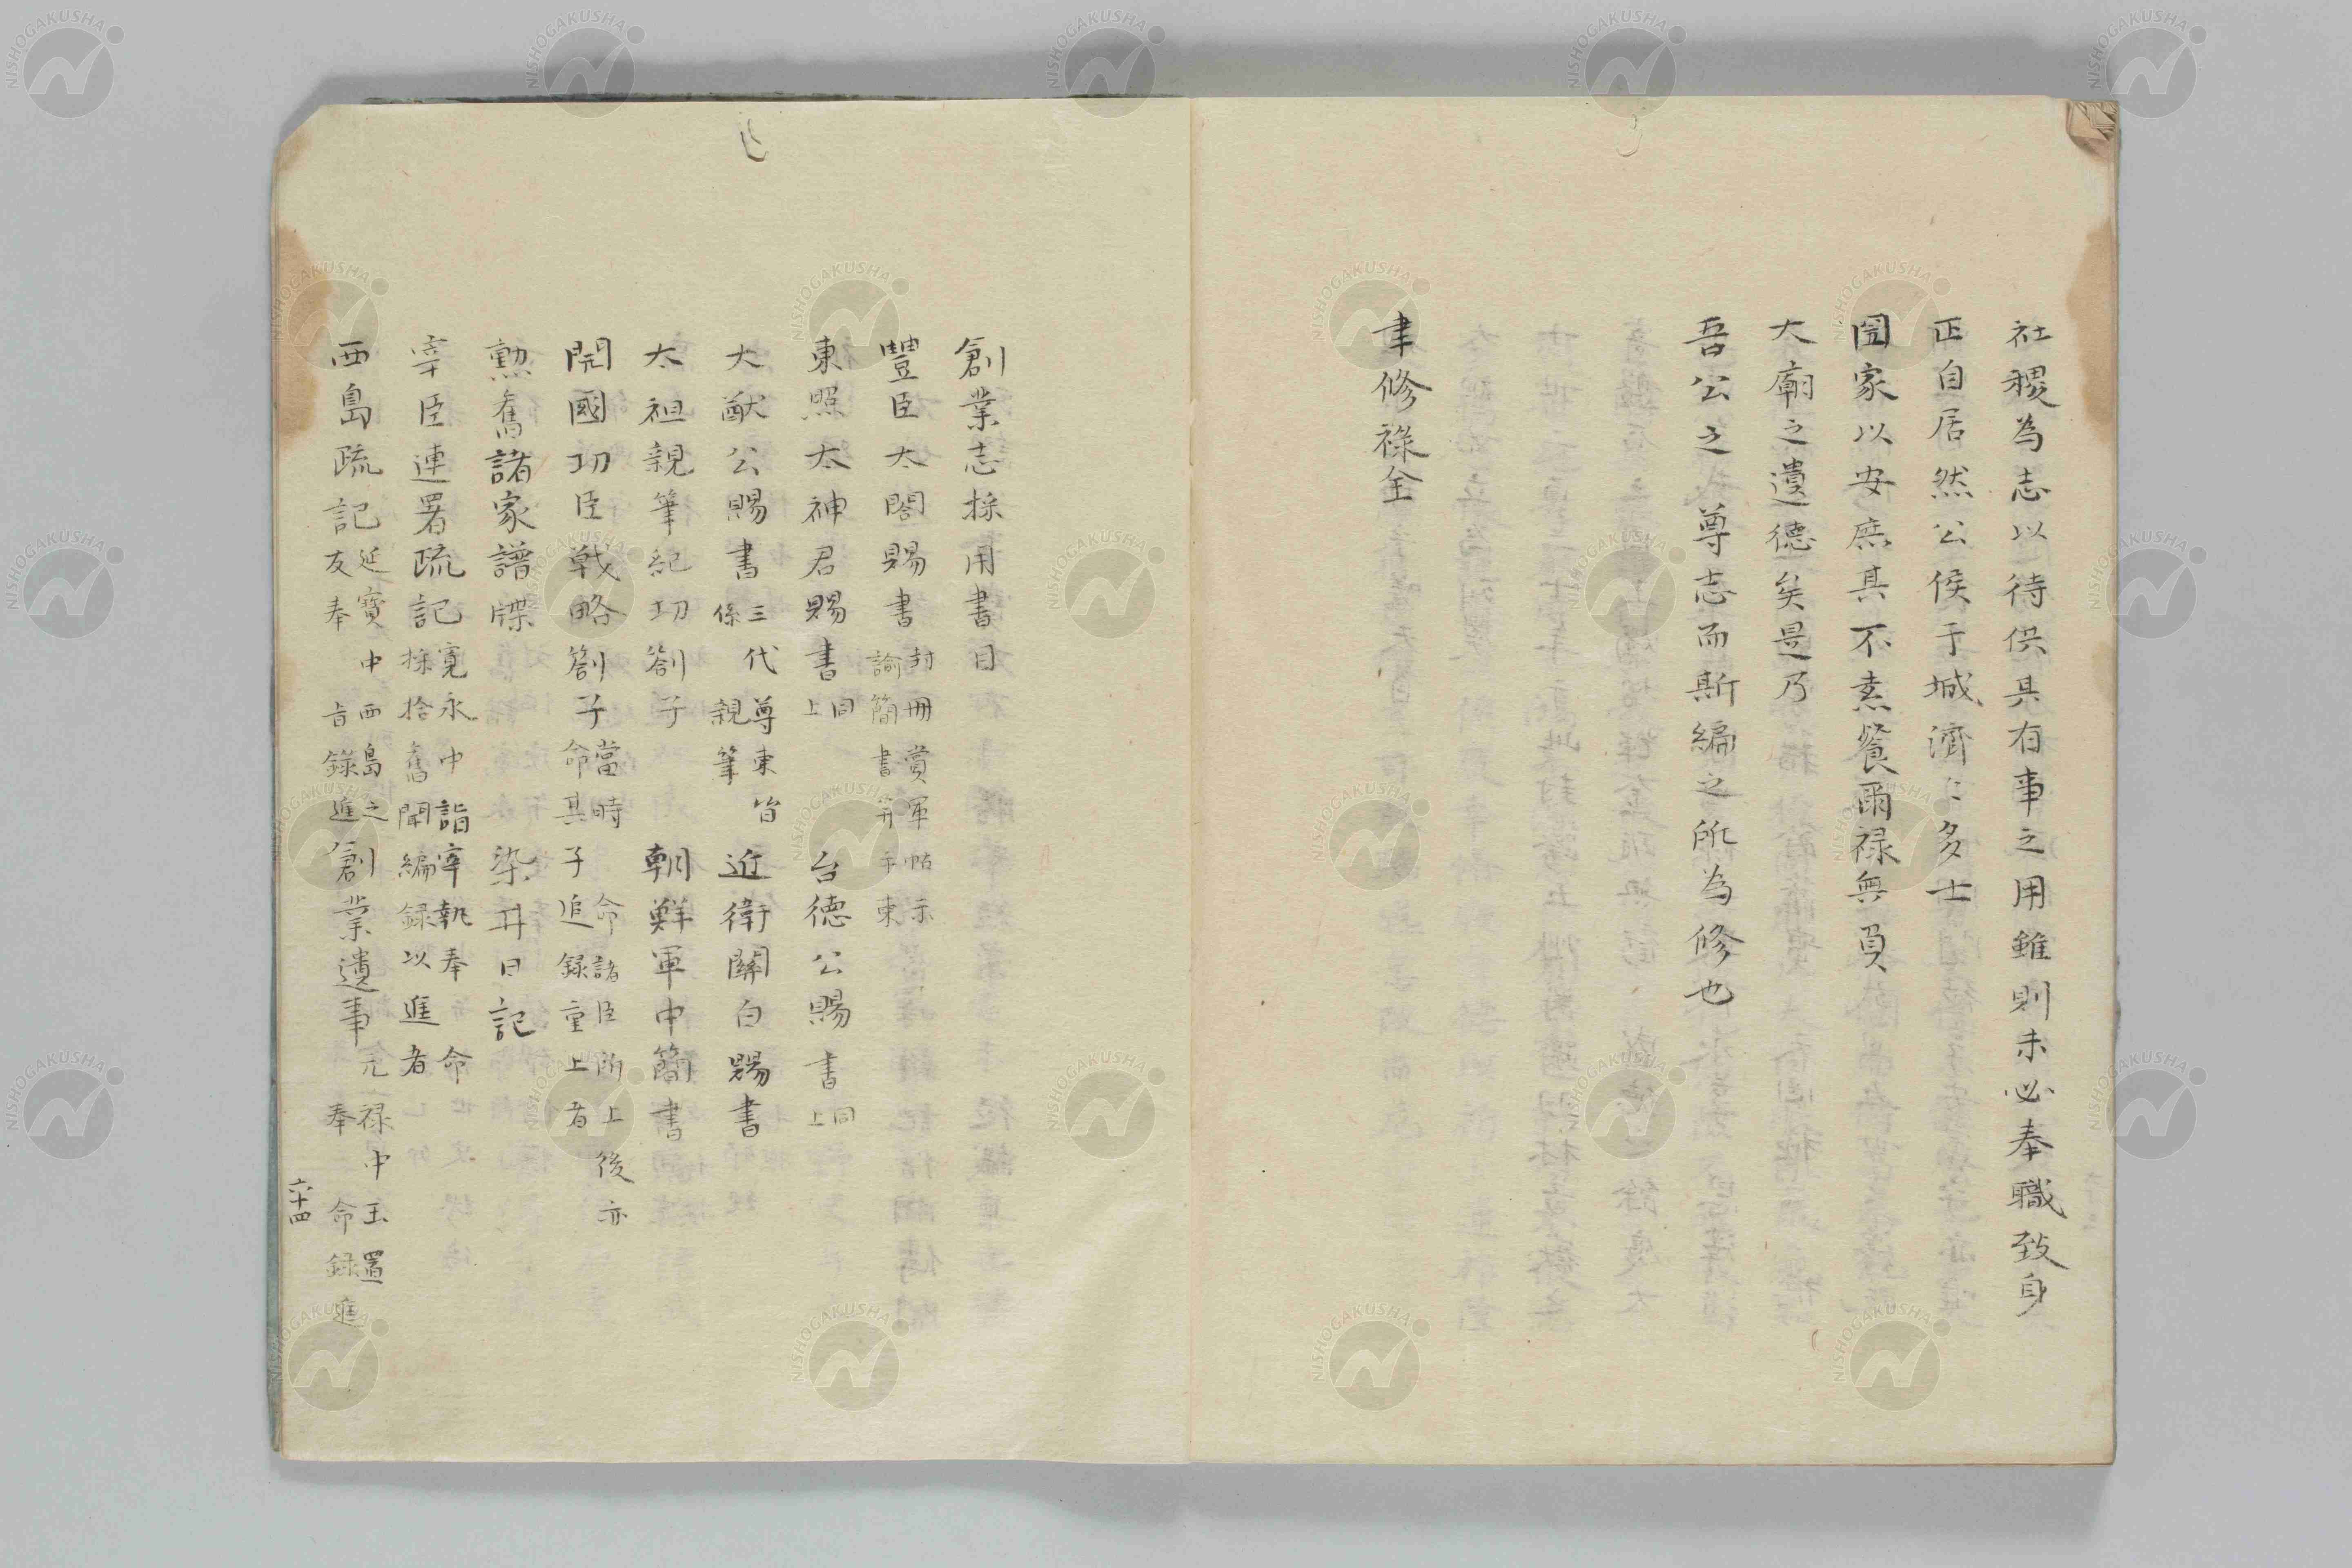 社稷為志以待供其有事之用雖則未必奉職致身
正自居然公侯于城濟〻多士
国家以安庶其不素餐爾禄無負
大廟之遺德矣是乃
吾公之尊志而斯編之所為修也
聿修禄全
創業志採用書目
豐臣太閤賜書 封冊賞軍帖示
諭簡書并于東
東照太神君賜書 同上 台德公賜書 同上
大猷公賜書 三代尊東皆
係親筆 近衛關白賜書
太祖親筆紀功劄子 朝鮮軍中簡書
開國功臣戦略劄子 當時命諸臣所上後亦
命其子追録童上者
勲舊諸家譜牒 染井日記
宰臣連署疏記 寛永中詣宰執奉命
採捨舊聞編録以進者
西島疏記 延寶中西島之
友奉旨錄進 創業遺事 元禄中玉置
奉命録進
六十四
NISHOGAKUSHA